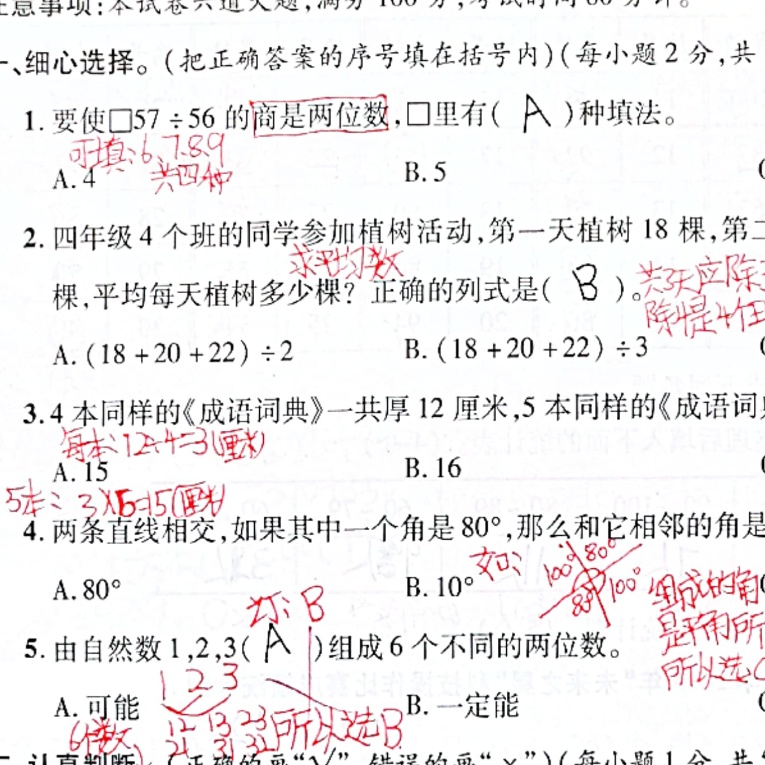 注意事项:本试卷六道大题,满分100分,考试时间80分钟。
一、细心选择。(把正确答案的序号填在括号内)(每小题2分,共
1.要使□57÷56的商是两位数,□里有( A )种填法。
可填:6.7.8.9
A.4 共四种 B.5
2.四年级4个班的同学参加植树活动,第一天植树18棵,第二
求平均数
棵,平均每天植树多少棵?正确的列式是( B )。 共3天应除3
除4是4个班
A.(18+20+22)÷2 B.(18+20+22)÷3
3.4本同样的《成语词典》一共厚12厘米,5本同样的《成语词典
每本:12÷4=3(厘米)
A.15 B.16
5本:3×5=15(厘米)
4.两条直线相交,如果其中一个角是80°,那么和它相邻的角是
如: 100° 80°
A.80° B.10° 80° 100° 组成的角
B 是平角所
5.由自然数1,2,3( A )组成6个不同的两位数。
所以选C
1 2 3
A.可能 B.一定能
6个数 12 13 23 所以选B
21 31 32
二、认真判断。(正确的画“√”,错误的画“×”)(每小题1分,共